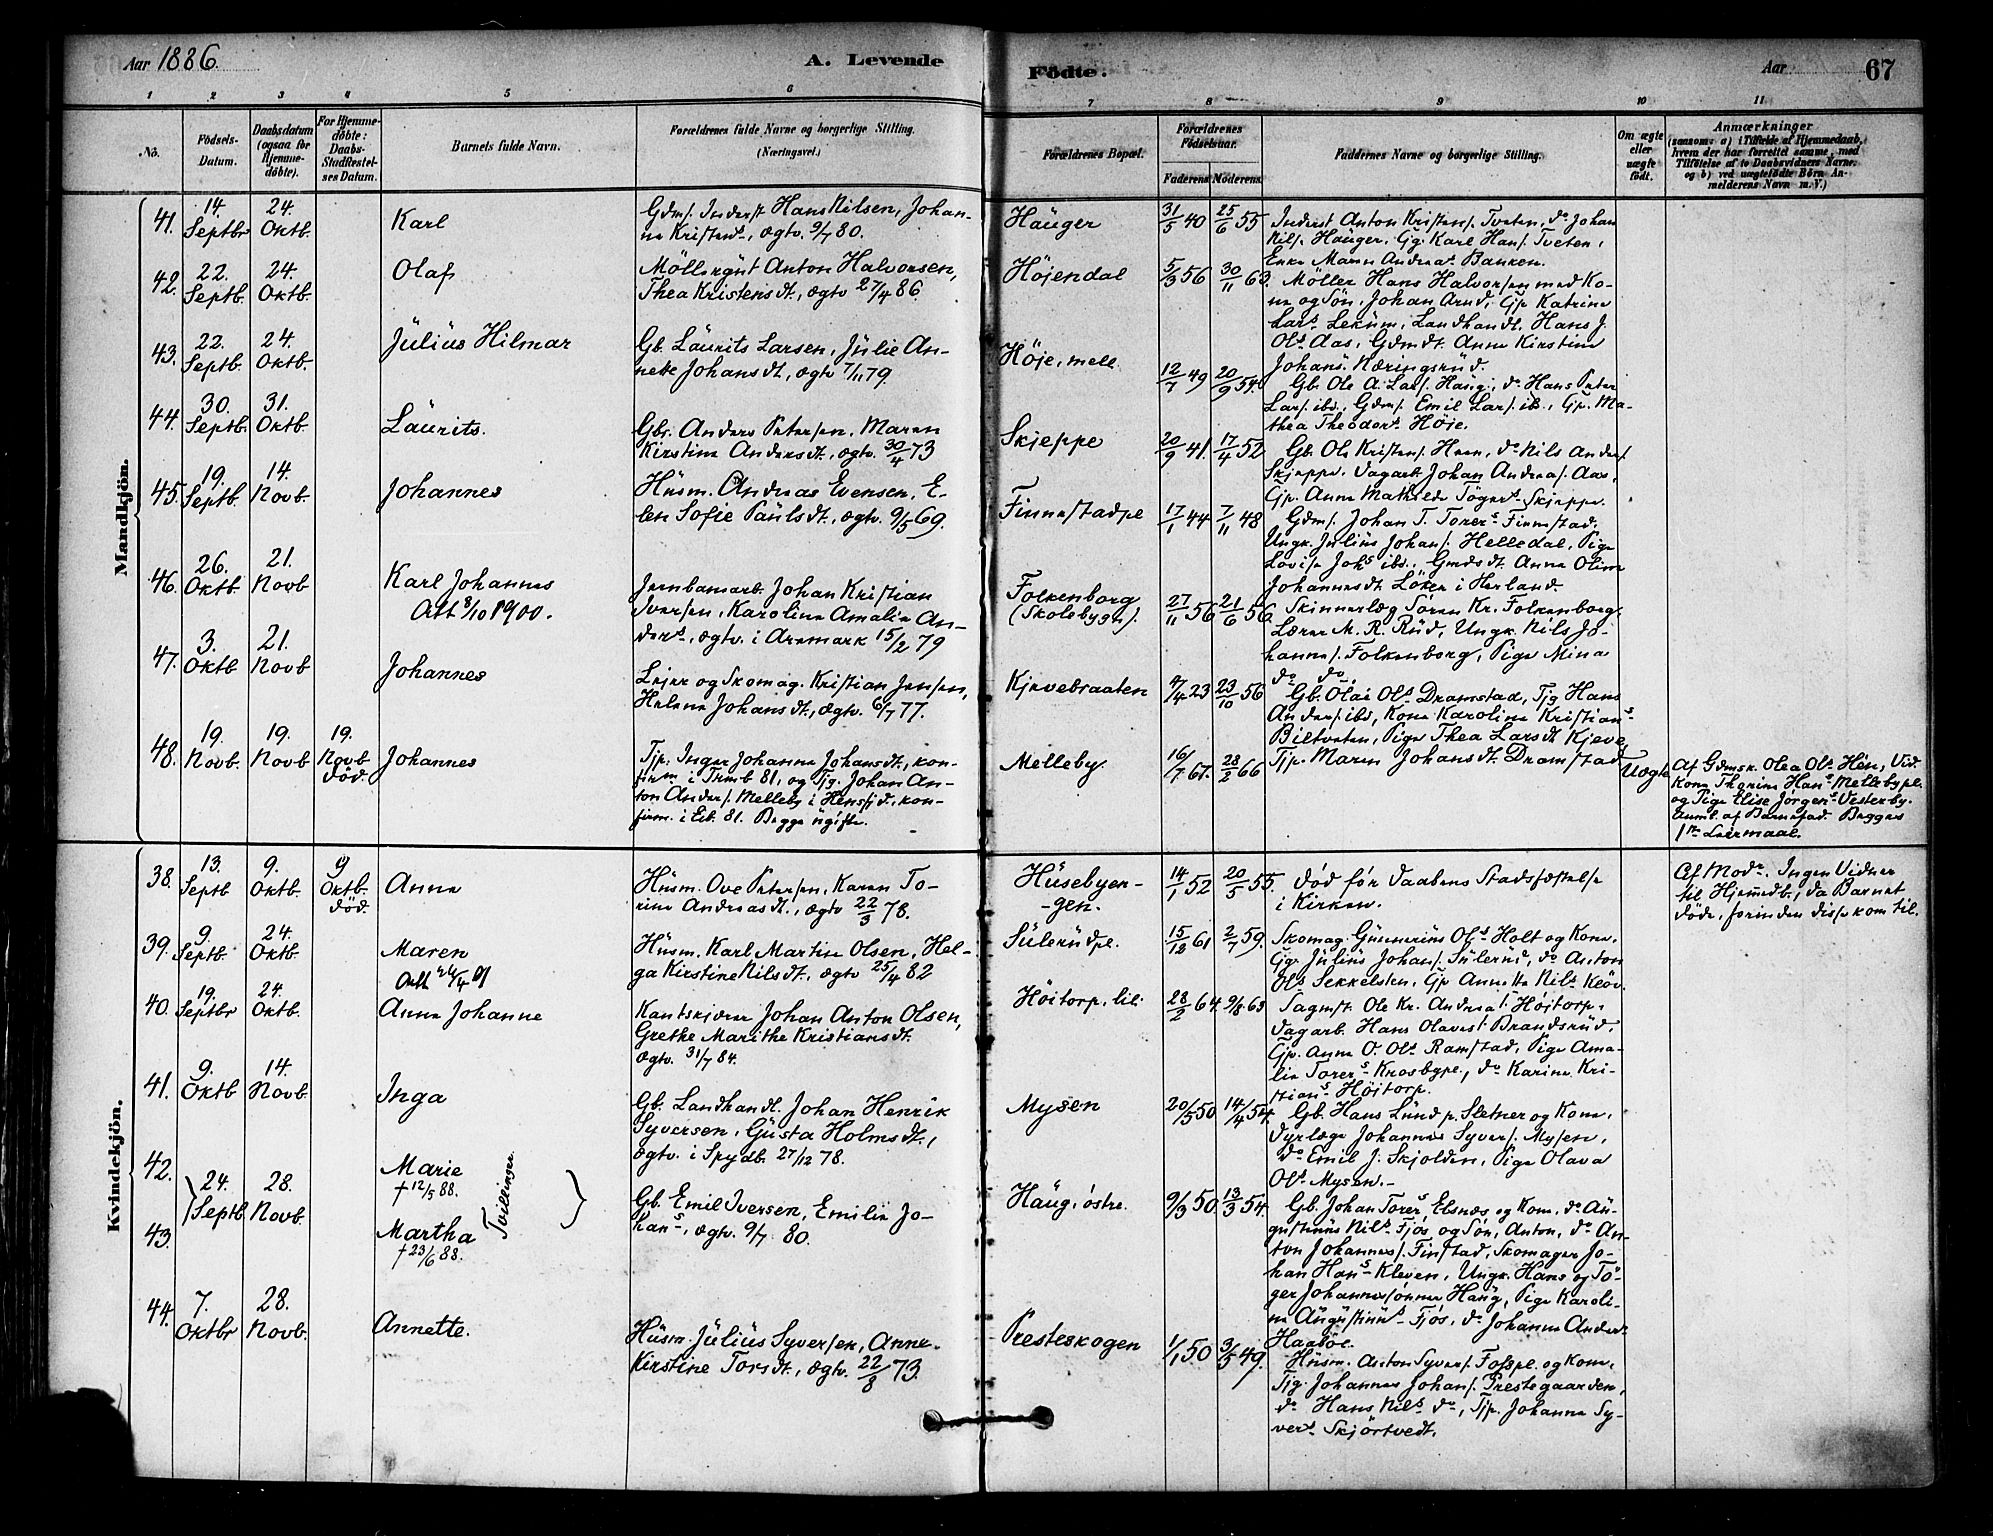 Aar 1886
A. Levende
Födte.
Aar 67
1 2 3 4 5 6 7 8 9 10 11
No.
Födsels-Datum.
Daabsdatum (ogsaa for Hjemme-döbte).
For Hjemme-döbte: Daabs-Stadfæstel-ses Datum.
Barnets fulde Navn.
Forældrenes fulde Navne og borgerlige Stilling. (Næringsvei.)
Forældrenes Bopæl.
Forældrenes Födselsaar.
Faderens. Moderens.
Faddernes Navne og borgerlige Stilling.
Om ægte eller uægte födt.
Anmærkninger
(saasom: a) i Tilfælde af Hjemmedaab, hvem der har forrettet samme, med Tilföielse af to Daabsvidners Navne; og b) ved uægtefödte Börn An-melderens Navn m. V.)
Mandkjön.
41. 14. Septbr 24. Oktb. Karl
Gdms. Inderst Hans Nilsen, Johan-
ne Kristens, ægtv. 9/7 80.
Haüger 31/5 40 25/6 55
Inderst Anton Kristens. Tveten, do Johan
Nils. Haüger, Gg. Karl Hans. Tveten,
Enke Maren Andreas. Banken.
42. 22. Septb. 24. Oktb. Olaf
Möllergüt Anton Halvorsen,
Thea Kristensdt., ægtv 27/4 86.
Höjendal 5/3 56 30/11 63.
Möller Hans Halvorsen med Ko-
ne og Sön, Johan Arnd, Gp Katrine
Lars. Leküm, Landhandt. Hans J.
Ols. Aas, Gdmdt. Anne Kirstine
Johans. Næringsrüd.
43. 22. Septb. 24. Oktb. Jülius Hilmar
Gb. Laürits Larsen, Jülie An-
nette Johansdt, ægtv 7/11 79.
Höje, mell 12/7 49 20/9 54.
Gb. Ole A. Lars. Haüg, do Hans Peter
Lars. ibd., Gdms. Emil Lars. ib., Gp. Ma-
thea Theodors. Höje.
44. 30. Septb. 31. Oktb. Laürits.
Gbr. Anders Petersen, Maren
Kirstine Andersdt, ægtv. 30/4 73
Skjeppe 20/9 41. 17/4 52
Gb. Ole Kristens. Hern, do Nils Anders.
Skjeppe. Dagarb. Johan Andreas. Aas,
Gp. Anne Mathilde Tögers. Skjeppe.
45. 19. Septb. 14. Novb. Johannes
Hüsm. Andreas Evensen, E-
len Sofie Paülsdt, ægtv. 9/5 69.
Finnestadpe 17/1 44 7/11 48
Gdms. Johan T. Torers. Finnestad.
Ungk. Jülius Johans. Helledal, Pige
Lovise Johs ibd., Gmdsdt. Anne Oline
Johannesdt. Löken i Herland.
46. 26. Oktb. 21. Novb Karl Johannes
Att 3/10 1900.
Jernbanearb. Johan Kristian
Iversen, Karoline Amalie An-
ders., ægtv. i Aremark 15/2 79
Folkenborg
(Skolebygn). 27/11 56 21/6 56.
Skinnerlæg Sören Kr. Folkenborg.
Lærer M. R. Rüd, Ungk. Nils Jo-
hannes. Folkenborg, Pige Mina
do do.
47. 3. Oktb 21. Novb Johannes
Lejer og Skomag. Kristian Jensen,
Helene Johansdt, ægtv. 6/7 77.
Kjevebraaten 4/4 23 23/10 56
Gb. Olai Ols. Dramstad, Tjg Hans
Anders. ibd, Kone Karoline Kristians.
Biltveten, Pige Thea Larsdt Kjeve,
Tjp. Maren Johansdt. Dramstad
48. 19. Novb. 19. Novb 19. Novb död. Johannes
Tjp. Inger Johanne Johansdt, kon-
firm i Trmb 81, og Tjg. Johan An-
ton Anders. Melleby i Henstjd., kon-
firm. i Eib. 81. Begge ügifte.
Melleby. 16/7 67. 28/2 66
Uægte
Af Gdmsk. Olea Ols. Hen, Vid.
Kone Thorine Hans. Mellebype.
og Pige Elise Jörgens. Vesterby.
Anml. af Barnefad. Begges
1ste Leiermaal.
Kvindekjön.
38. 13. Septb 9. Oktb. 9 Oktb. död. Anne
Hüsm. Ove Petersen, Karen To-
rine Andreasdt., ægtv 22/3 78.
Hüsebyen-
-gen. 14/1 52 20/5 55.
Död för Daabens Stadsfæstelse
i Kirken.
Af Modr. Ingen Vidner
til Hjemmedb, da Barnet
döde, forinden disse kom til.
39. 9. Septb. 24. Oktb. Maren
Att 24/4 01
Hüsm. Karl Martin Olsen, Hel-
ga Kirstine Nilsdt., ægtv 25/4 82
Sülerüdpl. 15/12 61 2/7 59.
Skomag. Günnerius Ols. Holt og Kone,
Gg. Jülius Johans. Sülerüd, do Anton
Ols. Sekkelsten, Gp Annette Nils. Klöv.
40. 19. Septbr 24. Oktb. Anne Johanne
Kantskjærer Johan Anton Olsen,
Grethe Marithe Kristiansdt.
ægtv. 31/7 84.
Höitorp, lil. 28/2 64. 9/8 63
Sagmst. Ole Kr. Andreas. Höitorp,
Dagarb. Hans Olaves. Brandsrüd,
Gp. Anne O. Ols. Ramstad, Pige Ama-
lie Torers. Krosbype., do Karine Kri-
stians. Höitorp.
41. 9. Oktb 14. Novb. Inga
Gb. Landhandt. Johan Henrik
Syversen, Güsta Holmsdt.,
ægtv. i Spydb. 27/12 78.
Mysen 20/5 50 14/4 54.
Gb. Hans Lünd p. Sletner og Kone,
Dyrlæge Johannes Syvers. Mysen,
do Emil J. Skjolden, Pige Olava
Ols. Mysen.-
42. 24. Septb 28. Novb. Marie
† 12/5 88.
43. Martha
† 23/6 88.
Tvillinger.
Gb. Emil Iversen, Emilie Jo-
hans, ægtv. 9/7 80.
Haüg, östre. 9/3 50. 13/3 54.
Gb. Johan Torers. Elsnes og Kone, do Aü-
güstinus Nils. Fjös og Sön, Anton, do An-
ton Johannes. Finstad, Skomager Jo-
han Hans. Kleven, Ungk. Hans og Tö-
ger Johannessönner Haüg, Pige Karoli-
ne Aügüstinüs. Fjös, do Johanne Anders.
Haaböl.
44. 7. Oktbr 28. Novb. Annette.
Hüsm. Jülius Syversen, Anne
Kirstine Torsdt., ægtv. 22/8 73.
Presteskogen 1/1 50 3/5 49.
Hüsm. Anton Syvers. Fosspl. og Kone,
Tjg. Johannes Johans. Prestegaarden,
do Hans Nils. do, Tjp. Johanne Sy-
vers. Skjörtvedt.